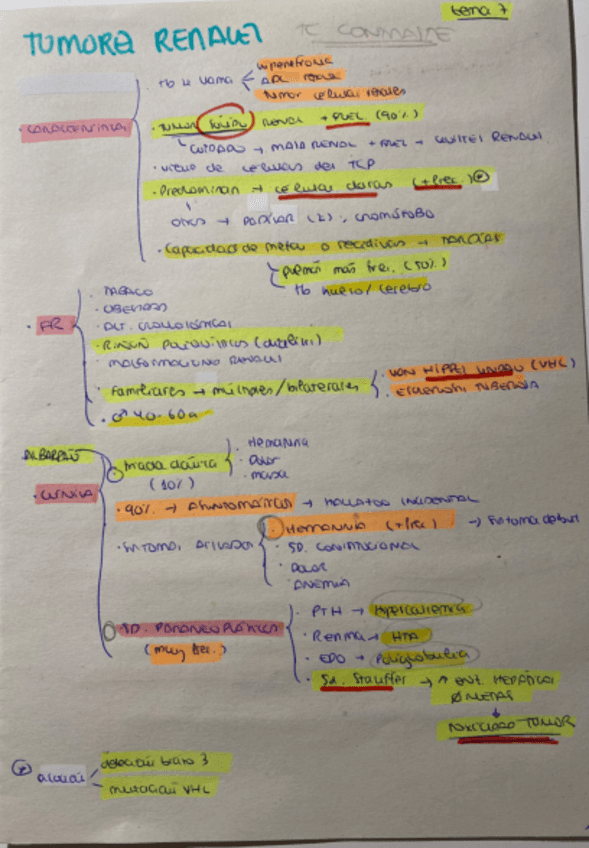 tema 7
TUMORES RENALES
TC CONTRASTE
· CARACTERÍSTICAS
· Tb se llama
hipernefroma
ADC renal
tumor células renales
· TUMOR SÓLIDO RENAL + FREC (90%)
CUIDADO → MASA RENAL + FREC → QUISTES RENALES
· viene de células del TCP
· Predominan → células claras (+frec.) *
otros → papilar (2), cromófobo
· Capacidad de metas o recidivas → TARDÍAS
pulmón más frec. (50%)
Tb hueso/cerebro
· FR
· TABACO
· OBESIDAD
· ALT. CROMOSÓMICAS
· RIÑÓN POLIQUÍSTICO
· MALFORMACIONES RENALES
· Familiares → múltiples/bilaterales
· VON HIPPEL LINDAU (VHL)
· ESCLEROSIS TUBEROSA
· ♂ 40-60a
· CLÍNICA
· triada clásica
(10%)
· Hematuria
· Dolor
· masa
· 90% → ASINTOMÁTICOS → HALLAZGO INCIDENTAL
· SÍNTOMAS AISLADOS
· HEMATURIA (+frec) → Síntoma debut
· SD. CONSTITUCIONAL
· DOLOR
· ANEMIA
· SD. PARANEOPLÁSICOS
(muy frec.)
· PTH → Hipercalcemia
· Renina → HTA
· EPO → Poliglobulia
· Sd. Stauffer → ↑ ENZ. HEPÁTICAS
Ø METAS
↓
TOXICIDAD TUMOR
* asocian
delección brazo 3
mutación VHL